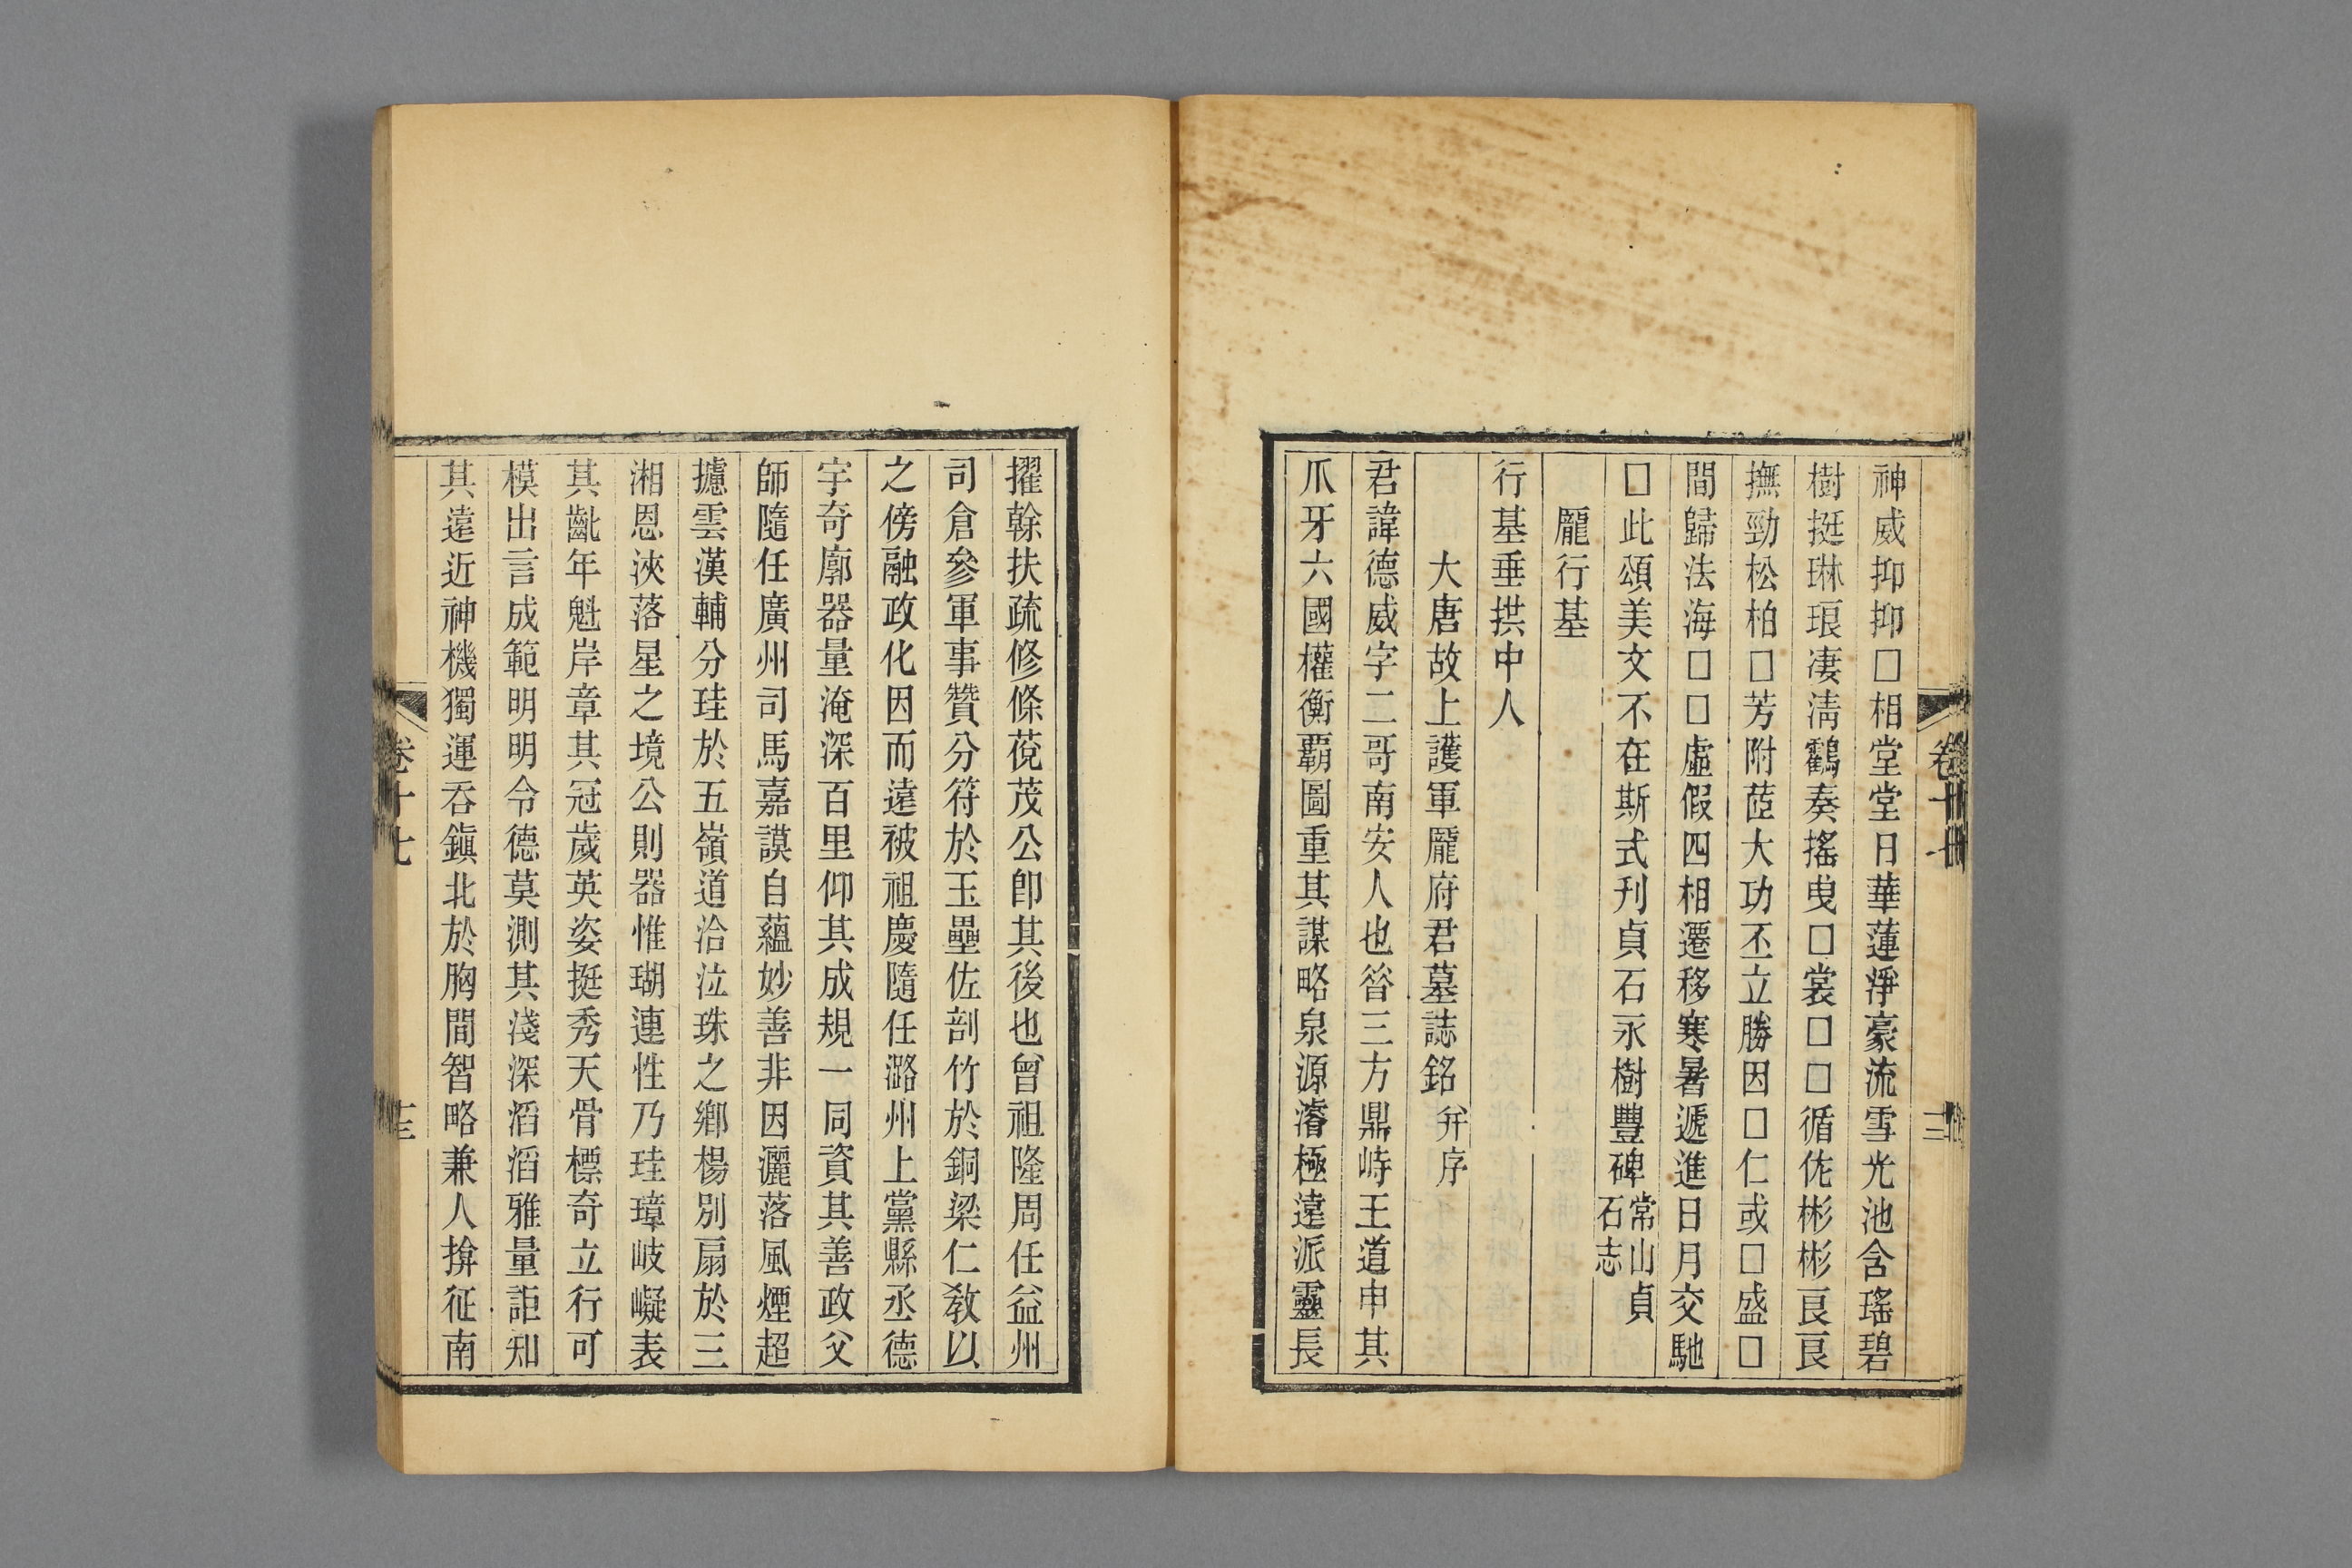 神威抑抑□相堂堂日華蓮淨豪流雪光池含瑤碧
樹挺琳琅凄淸鶴奏搖曳□裳□□循侂彬彬㫐㫐
撫勁松柏□芳附茝大功丕立勝因□仁或□盛□
間歸法海□□虛假四相遷移寒暑遞進日月交馳
□此頌美文不在斯式刊貞石永樹豐碑常山貞石志
龎行基
行基垂拱中人
大唐故上護軍龎府君墓誌銘幷序
君諱德威字二哥南安人也昝三方鼎峙王道申其
爪牙六國權衡覇圖重其謀略泉源濬極遠派靈長
擢榦扶疏修條䓲茂公卽其後也曾祖隆周任益州
司倉參軍事贊分符於玉壘佐剖竹於銅梁仁敎以
之傍融政化因而遠被祖慶隨任潞州上黨縣丞德
宇奇廓器量淹深百里仰其成規一同資其善政父
師隨任廣州司馬嘉謨自蘊妙善非因灑落風煙超
攄雲漢輔分珪於五嶺道洽泣珠之鄉楊別扇於三
湘恩浹落星之境公則器惟瑚連性乃珪璋岐嶷表
其齔年魁岸章其冠歲英姿挺秀天骨標奇立行可
模出言成範明明令德莫測其淺深滔滔雅量詎知
其遠近神機獨運吞鎭北於胸間智略兼人揜征南
卷十七
十三